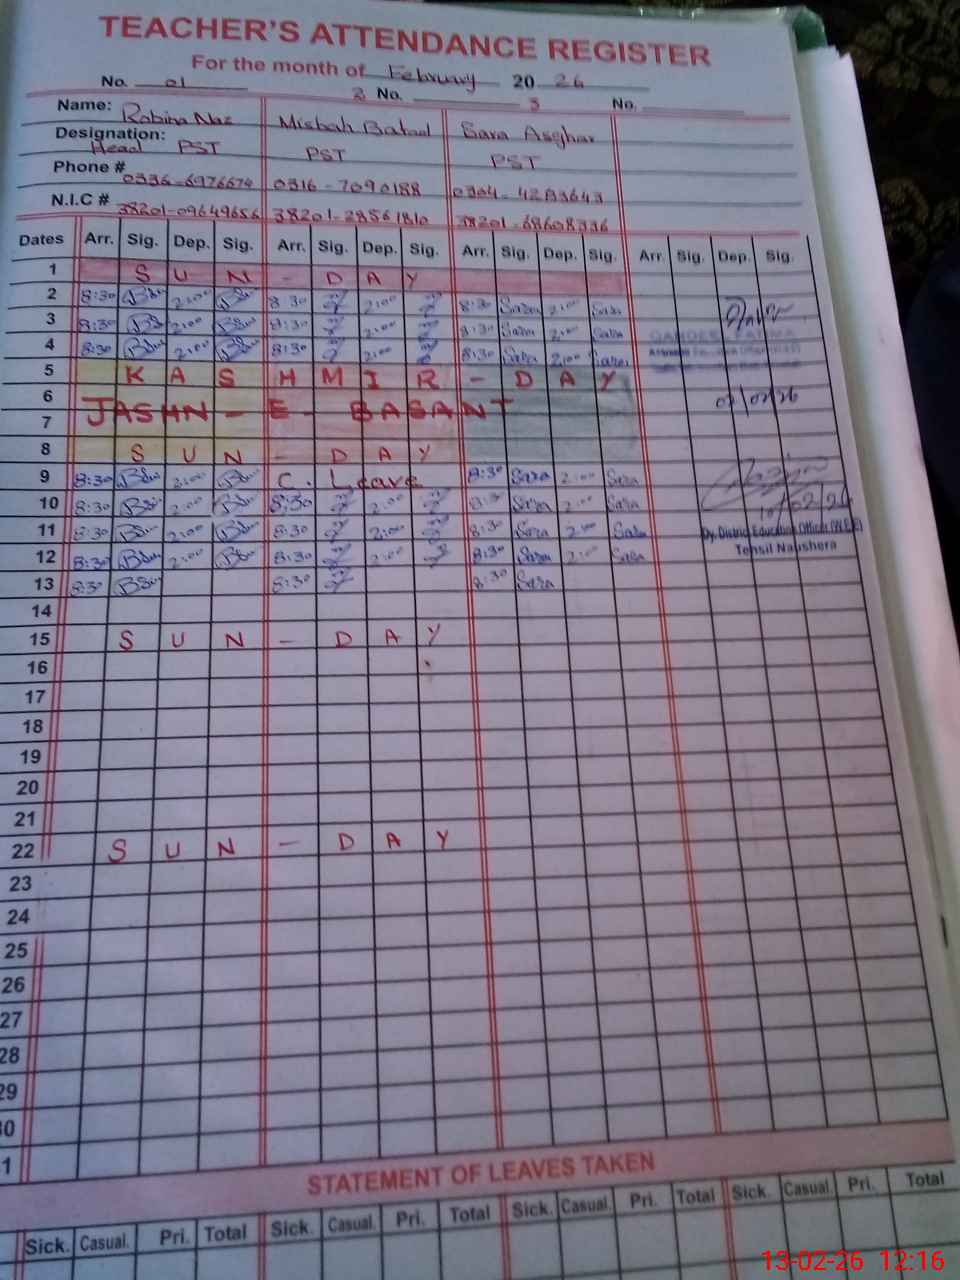 TEACHER'S ATTENDANCE REGISTER
For the month of February 2026
No. 01 2 No. 3 No.
Name: Robina Naz Misbah Batool Sara Asghar
Designation: Head PST PST PST
Phone # 0336-6976674 0316-7090188
N.I.C # 38201-09649656 38201-28561810 38201-68608336
Dates Arr. Sig. Dep. Sig. Arr. Sig. Dep. Sig. Arr. Sig. Dep. Sig. Arr. Sig. Dep. Sig.
1 SUN - DAY
2 8:30 2:00 8:30 2:00 8:30 Sara 2:00 Sara
3 8:30 2:00 8:30 2:00 8:30 Sara 2:00 Sara
4 8:30 2:00 8:30 2:00 8:30 Sara 2:00 Sara
5 KASHMIR - DAY
6 JASHN - E - BASANT
7
8 SUN - DAY
9 8:30 2:00 C. Leave 8:30 Sara 2:00 Sara
10 8:30 2:00 8:30 2:00 8:30 Sara 2:00 Sara
11 8:30 2:00 8:30 2:00 8:30 Sara 2:00 Sara
Dy. District Education Officer (W.E.E)
12 8:30 2:00 8:30 2:00 8:30 Sara 2:00 Sara
Tehsil Naushera
13 8:30 8:30 8:30 Sara
14
15 SUN - DAY
16
17
18
19
20
21
22 SUN - DAY
23
24
25
26
27
28
29
30
1
STATEMENT OF LEAVES TAKEN
Sick. Casual. Pri. Total Sick. Casual. Pri. Total Sick. Casual. Pri. Total Sick. Casual. Pri. Total
13-02-26 12:16